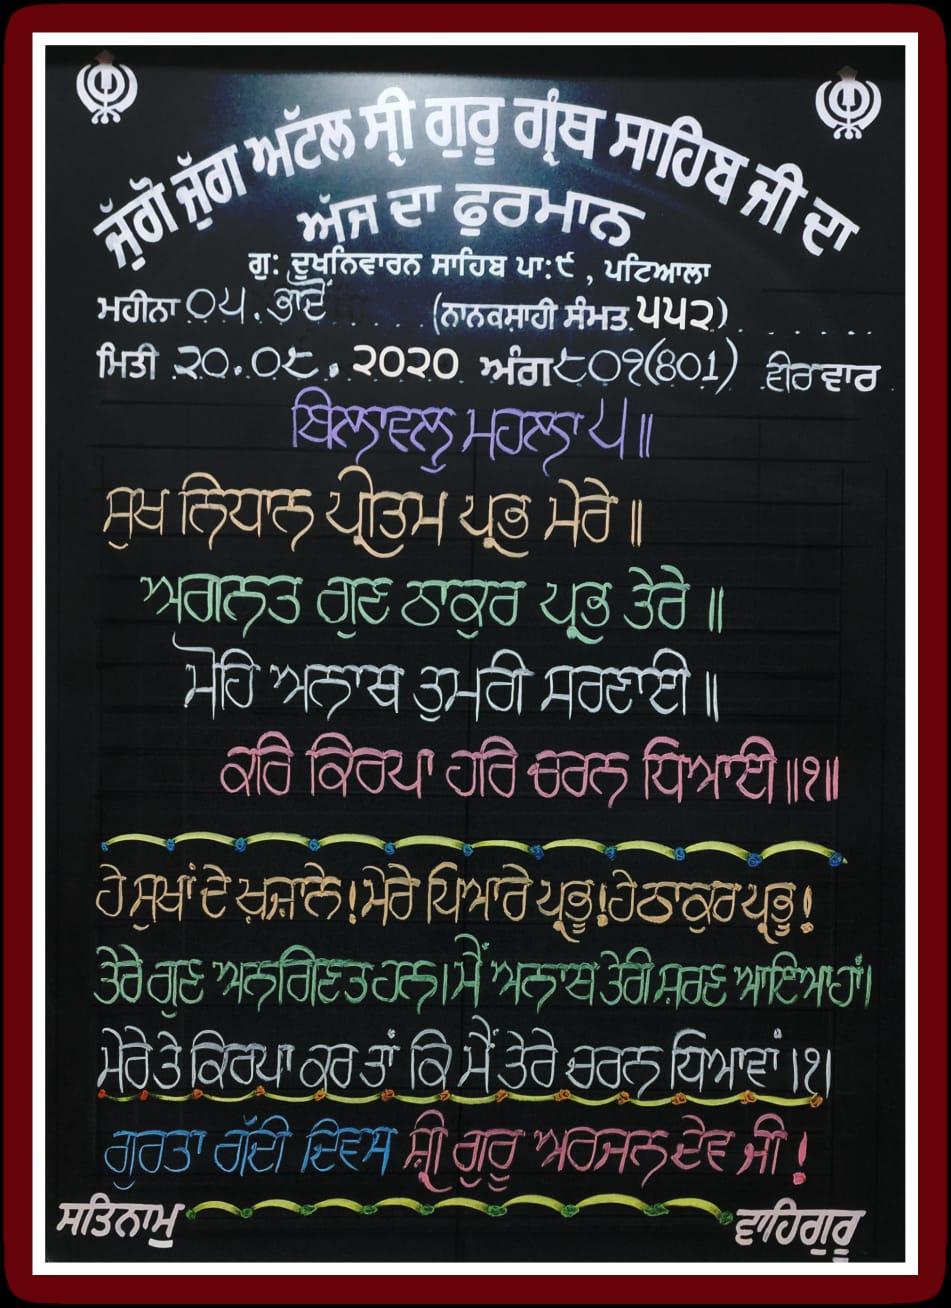 ਜੁੱਗੋ ਜੁੱਗ ਅਟੱਲ ਸ੍ਰੀ ਗੁਰੂ ਗ੍ਰੰਥ ਸਾਹਿਬ ਜੀ ਦਾ
ਅੱਜ ਦਾ ਫੁਰਮਾਨ
ਗੁ: ਦੁਖਨਿਵਾਰਨ ਸਾਹਿਬ ਪਾ:੯ , ਪਟਿਆਲਾ
ਮਹੀਨਾ ੦੫. ਭਾਦੋਂ (ਨਾਨਕਸ਼ਾਹੀ ਸੰਮਤ ੫੫੨)
ਮਿਤੀ ੨੦.੦੮. ੨੦੨੦ ਅੰਗ ੮੦੧(801) ਵੀਰਵਾਰ
ਬਿਲਾਵਲੁ ਮਹਲਾ ੫॥
ਸੁਖ ਨਿਧਾਨ ਪ੍ਰੀਤਮ ਪ੍ਰਭ ਮੇਰੇ ॥
ਅਗਨਤ ਗੁਣ ਠਾਕੁਰ ਪ੍ਰਭ ਤੇਰੇ ॥
ਮੋਹਿ ਅਨਾਥ ਤੁਮਰੀ ਸਰਣਾਈ ॥
ਕਰਿ ਕਿਰਪਾ ਹਰਿ ਚਰਨ ਧਿਆਈ ॥੧॥
ਹੇ ਸੁਖਾਂ ਦੇ ਖ਼ਜ਼ਾਨੇ! ਮੇਰੇ ਪਿਆਰੇ ਪ੍ਰਭੂ! ਹੇ ਠਾਕੁਰ ਪ੍ਰਭੂ!
ਤੇਰੇ ਗੁਣ ਅਨਗਿਣਤ ਹਨ। ਮੈਂ ਅਨਾਥ ਤੇਰੀ ਸ਼ਰਣ ਆਇਆ ਹਾਂ।
ਮੇਰੇ ਤੇ ਕਿਰਪਾ ਕਰ ਤਾਂ ਕਿ ਮੈਂ ਤੇਰੇ ਚਰਨ ਧਿਆਵਾਂ।੧।
ਗੁਰਤਾ ਗੱਦੀ ਦਿਵਸ ਸ਼੍ਰੀ ਗੁਰੂ ਅਰਜਨ ਦੇਵ ਜੀ!
ਸਤਿਨਾਮੁ ਵਾਹਿਗੁਰੂ